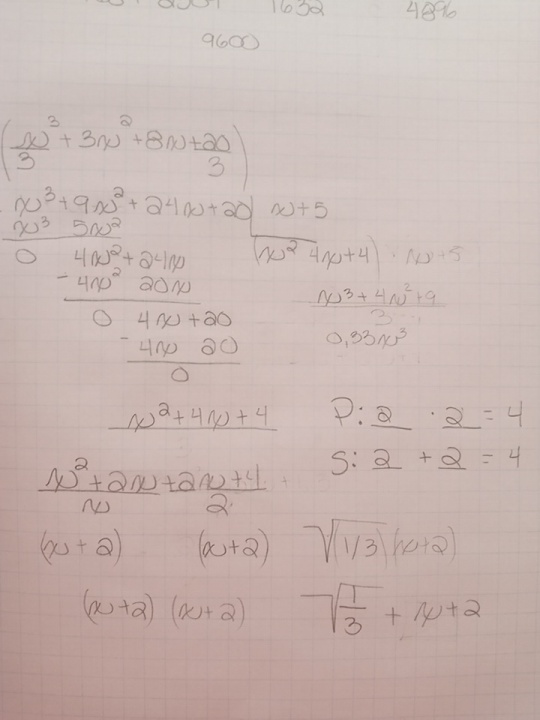 1632 4896
9600
(x³/3 + 3x² + 8x + 20/3)
x³ + 9x² + 24x + 20 | x + 5
x³ 5x² (x² 4x + 4) · x + 5
0 4x² + 24x
- 4x² 20x x³ + 4x² + 9
0 4x + 20 3
- 4x 20 0,33x³
0
x² + 4x + 4 P: 2 · 2 = 4
S: 2 + 2 = 4
x² + 2x + 2x + 4
x 2
(x + 2) (x + 2) √(1/3)(x + 2)
(x + 2) (x + 2) √1/3 + x + 2